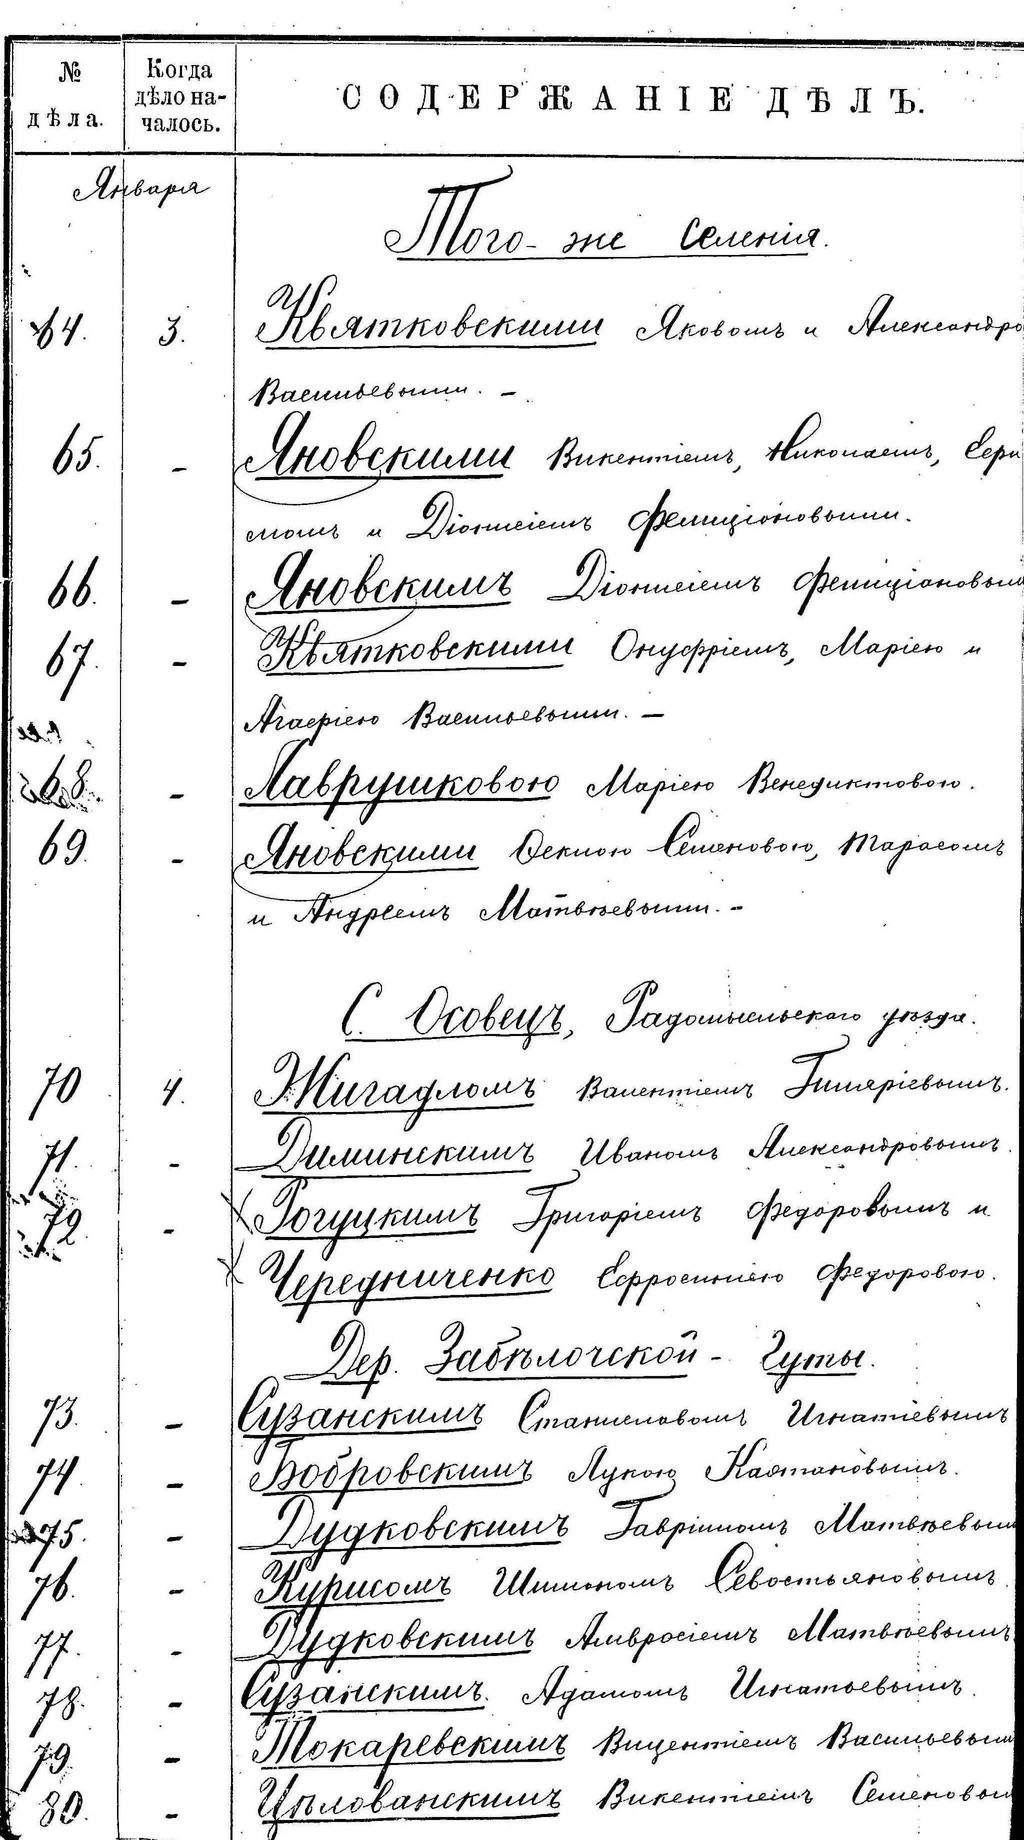 № дѣла.
Когда дѣло началось.
СОДЕРЖАНІЕ ДѢЛЪ.
Января
Того-же селенія.
64. 3. Квятковскими Яковомъ и Александро
Васильевыми. —
65. - Яновскими Викентіемъ, Николаемъ, Гера
имомъ и Діонисіемъ Фелиціановыми.
66. - Яновскимъ Діонисіемъ Фелиціановым
67. - Квятковскими Онуфріемъ, Маріею и
Агафіею Васильевыми. —
68. - Лаврушковою Маріею Венедиктовою.
69. - Яновскими Феклою Семеновою, Тарасомъ
и Андреемъ Матвѣевыми. -
С. Осовецъ, Радомысльскаго уѣзда.
70 4. Жигадломъ Валентіемъ Гиляріевымъ.
71. - Диминскимъ Иваномъ Александровымъ.
72. - Рогуцкимъ Григоріемъ Федоровымъ и
Чередниченко Ефросиніею Федоровою.
Дер. Забѣлочской - Гуты.
73. - Сузанскимъ Станиславомъ Игнатіевымъ
74. - Бобровскимъ Лукою Каэтановымъ.
75. - Дудковскимъ Гавріиломъ Матвѣевым
76. - Курисомъ Шимономъ Севостьяновымъ
77. - Дудковскимъ Амвросіемъ Матвѣевымъ
78. - Сузанскимъ. Адамомъ Игнатьевымъ.
79. - Токаревскимъ Вицентіемъ Васильевым
80. - Цѣлованскимъ Викентіемъ Семеновым